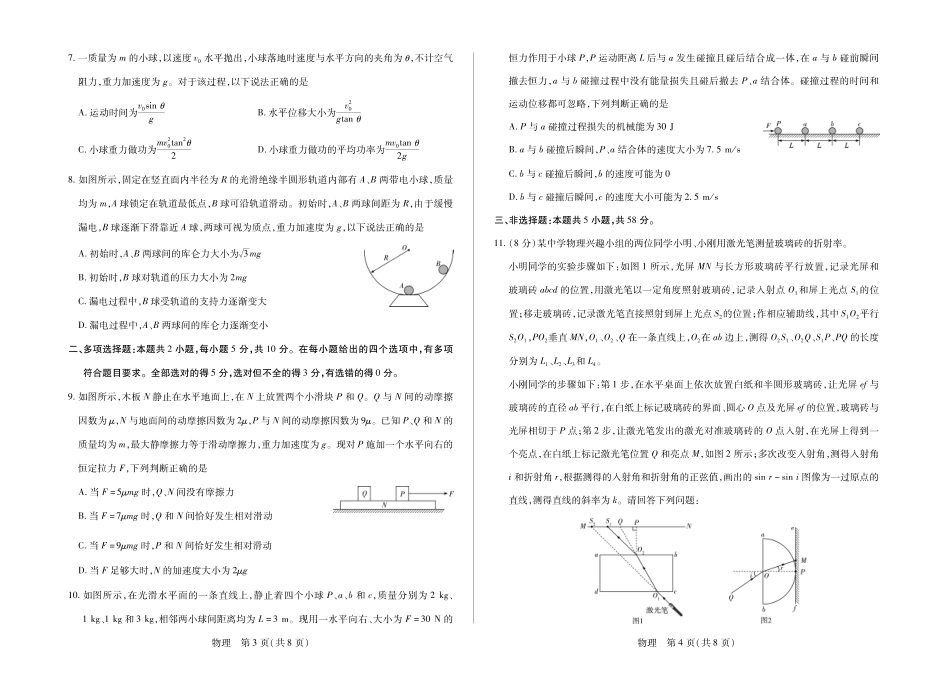 7. 一质量为 m 的小球,以速度 v0 水平抛出,小球落地时速度与水平方向的夹角为 θ,不计空气
阻力,重力加速度为 g。对于该过程,以下说法正确的是
A. 运动时间为 v0sin θ/g B. 水平位移大小为 v0²/gtan θ
C. 小球重力做功为 mv0²tan²θ/2 D. 小球重力做功的平均功率为 mv0tan θ/2g
8. 如图所示,固定在竖直面内半径为 R 的光滑绝缘半圆形轨道内部有 A、B 两带电小球,质量
均为 m,A 球锁定在轨道最低点,B 球可沿轨道滑动。初始时,A、B 两球间距为 R,由于缓慢
漏电,B 球逐渐下滑靠近 A 球,两球可视为质点,重力加速度为 g,以下说法正确的是
A. 初始时,A、B 两球间的库仑力大小为√3mg
B. 初始时,B 球对轨道的压力大小为 2mg
C. 漏电过程中,B 球受轨道的支持力逐渐变大
D. 漏电过程中,A、B 两球间的库仑力逐渐变小
O
R
B
A
二、多项选择题:本题共 2 小题,每小题 5 分,共 10 分。在每小题给出的四个选项中,有多项
符合题目要求。全部选对的得 5 分,选对但不全的得 3 分,有选错的得 0 分。
9. 如图所示,木板 N 静止在水平地面上,在 N 上放置两个小滑块 P 和 Q。Q 与 N 间的动摩擦
因数为 μ,N 与地面间的动摩擦因数为 2μ,P 与 N 间的动摩擦因数为 9μ。已知 P、Q 和 N 的
质量均为 m,最大静摩擦力等于滑动摩擦力,重力加速度为 g。现对 P 施加一个水平向右的
恒定拉力 F,下列判断正确的是
A. 当 F = 5μmg 时,Q、N 间没有摩擦力
B. 当 F = 7μmg 时,Q 和 N 间恰好发生相对滑动
C. 当 F = 9μmg 时,P 和 N 间恰好发生相对滑动
D. 当 F 足够大时,N 的加速度大小为 2μg
Q P F
N
10. 如图所示,在光滑水平面的一条直线上,静止着四个小球 P、a、b 和 c,质量分别为 2 kg、
1 kg、1 kg 和 3 kg,相邻两小球间距离均为 L = 3 m。现用一水平向右、大小为 F = 30 N 的
物理 第 3 页(共 8 页)
恒力作用于小球 P,P 运动距离 L 后与 a 发生碰撞且碰后结合成一体,在 a 与 b 碰前瞬间
撤去恒力,a 与 b 碰撞过程中没有能量损失且碰后撤去 P、a 结合体。碰撞过程的时间和
运动位移都可忽略,下列判断正确的是
A. P 与 a 碰撞过程损失的机械能为 30 J
B. a 与 b 碰撞后瞬间,P、a 结合体的速度大小为 7. 5 m/s
C. b 与 c 碰撞后瞬间,b 的速度可能为 0
D. b 与 c 碰撞后瞬间,c 的速度大小可能为 2. 5 m/s
F P a b c
L L L
三、非选择题:本题共 5 小题,共 58 分。
11. (8 分)某中学物理兴趣小组的两位同学小明、小刚用激光笔测量玻璃砖的折射率。
小明同学的实验步骤如下:如图 1 所示,光屏 MN 与长方形玻璃砖平行放置,记录光屏和
玻璃砖 abcd 的位置,用激光笔以一定角度照射玻璃砖,记录入射点 O1和屏上光点 S1的位
置;移走玻璃砖,记录激光笔直接照射到屏上光点 S2的位置;作相应辅助线,其中 S1O2平行
S2O1,PO2垂直 MN,O1、O2、Q 在一条直线上,O2在 ab 边上,测得 O2S1、O2Q、S1P、PQ 的长度
分别为 L1、L2、L3和 L4。
小刚同学的步骤如下:第 1 步,在水平桌面上依次放置白纸和半圆形玻璃砖,让光屏 ef 与
玻璃砖的直径 ab 平行,在白纸上标记玻璃砖的界面、圆心 O 点及光屏 ef 的位置,玻璃砖与
光屏相切于 P 点;第 2 步,让激光笔发出的激光对准玻璃砖的 O 点入射,在光屏上得到一
个亮点,在白纸上标记激光笔位置 Q 和亮点 M,如图 2 所示;多次改变入射角,测得入射角
i 和折射角 r,根据测得的入射角和折射角的正弦值,画出的 sin r - sin i 图像为一过原点的
直线,测得直线的斜率为 k。请回答下列问题:
M S2 S1 Q P N
a O2 b
d O1 c
激光笔
图1
e
a
M
i O r P
Q
b f
图2
物理 第 4 页(共 8 页)